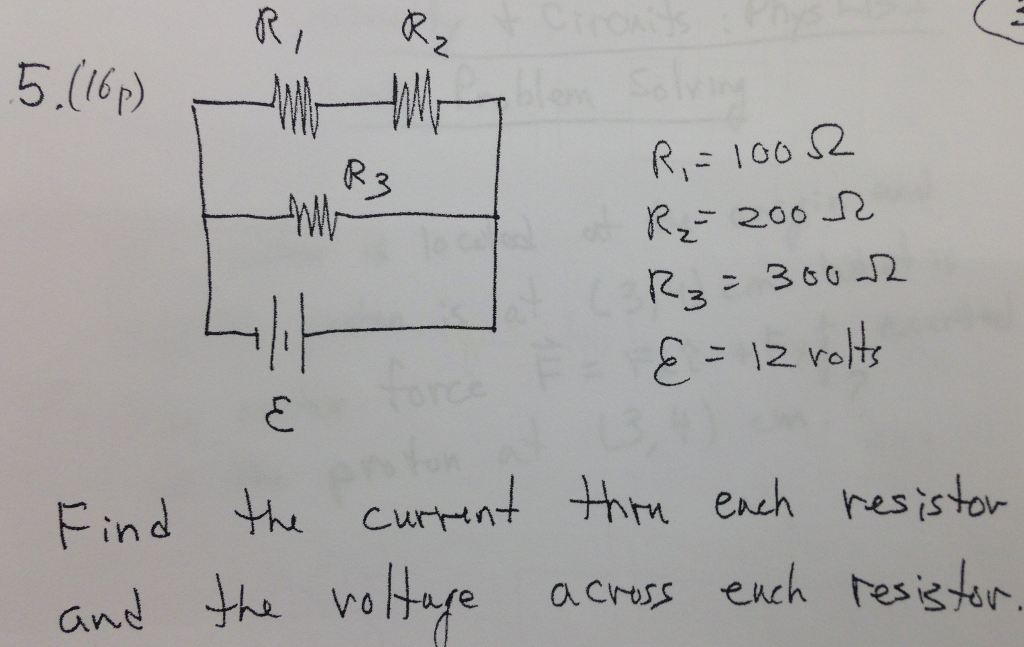 R₁ R₂
5.(16p)
R₃
R₁ = 100 Ω
R₂ = 200 Ω
R₃ = 300 Ω
ℰ = 12 volts
ℰ
Find the current thru each resistor
and the voltage across each resistor.